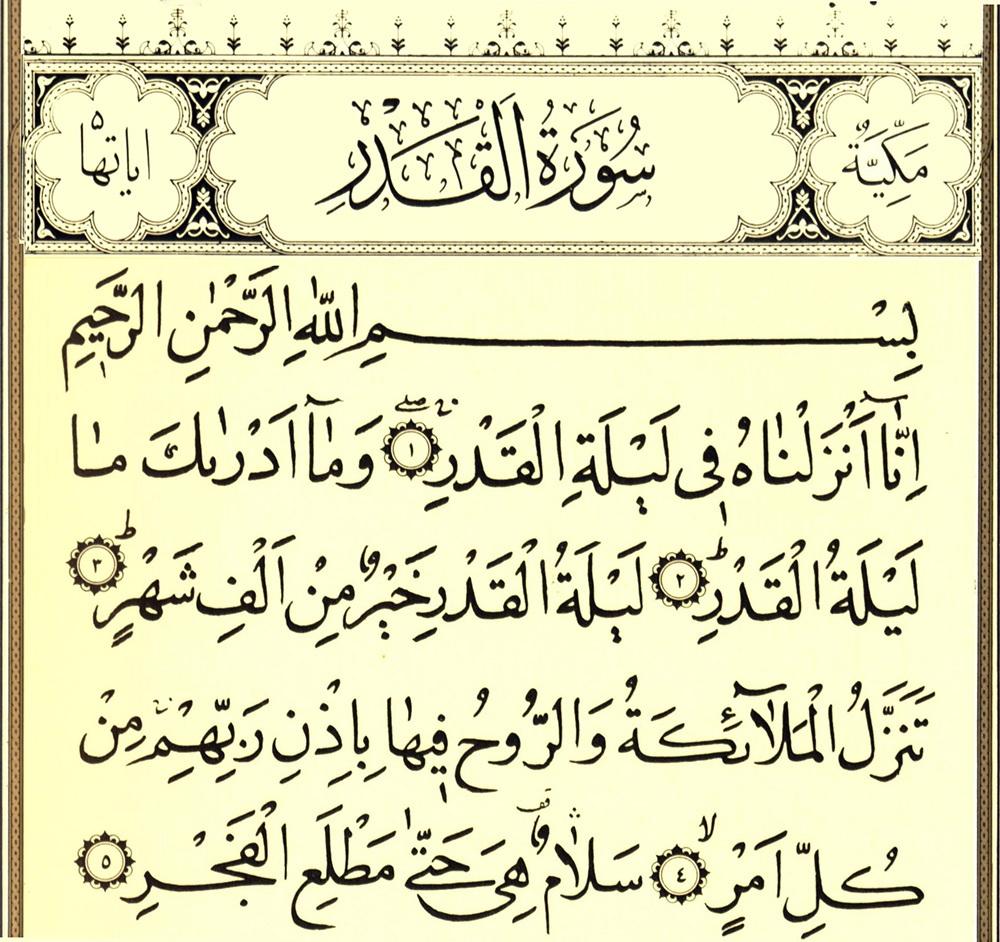 مَكِّيَّةٌ
سُورَةُ الْقَدْرِ
اياتها ٥
بِسْمِ اللّٰهِ الرَّحْمٰنِ الرَّحٖيمِ
اِنَّٓا اَنْزَلْنَاهُ فٖي لَيْلَةِ الْقَدْرِۚ ﴿١﴾ وَمَٓا اَدْرٰيكَ مَا
لَيْلَةُ الْقَدْرِؕ ﴿٢﴾ لَيْلَةُ الْقَدْرِ خَيْرٌ مِنْ اَلْفِ شَهْرٍؕ ﴿٣﴾
تَنَزَّلُ الْمَلٰٓائِكَةُ وَالرُّوحُ فٖيهَا بِاِذْنِ رَبِّهِمْ مِنْ
كُلِّ اَمْرٍۙ ﴿٤﴾ سَلَامٌ هِيَ حَتّٰى مَطْلَعِ الْفَجْرِ ﴿٥﴾